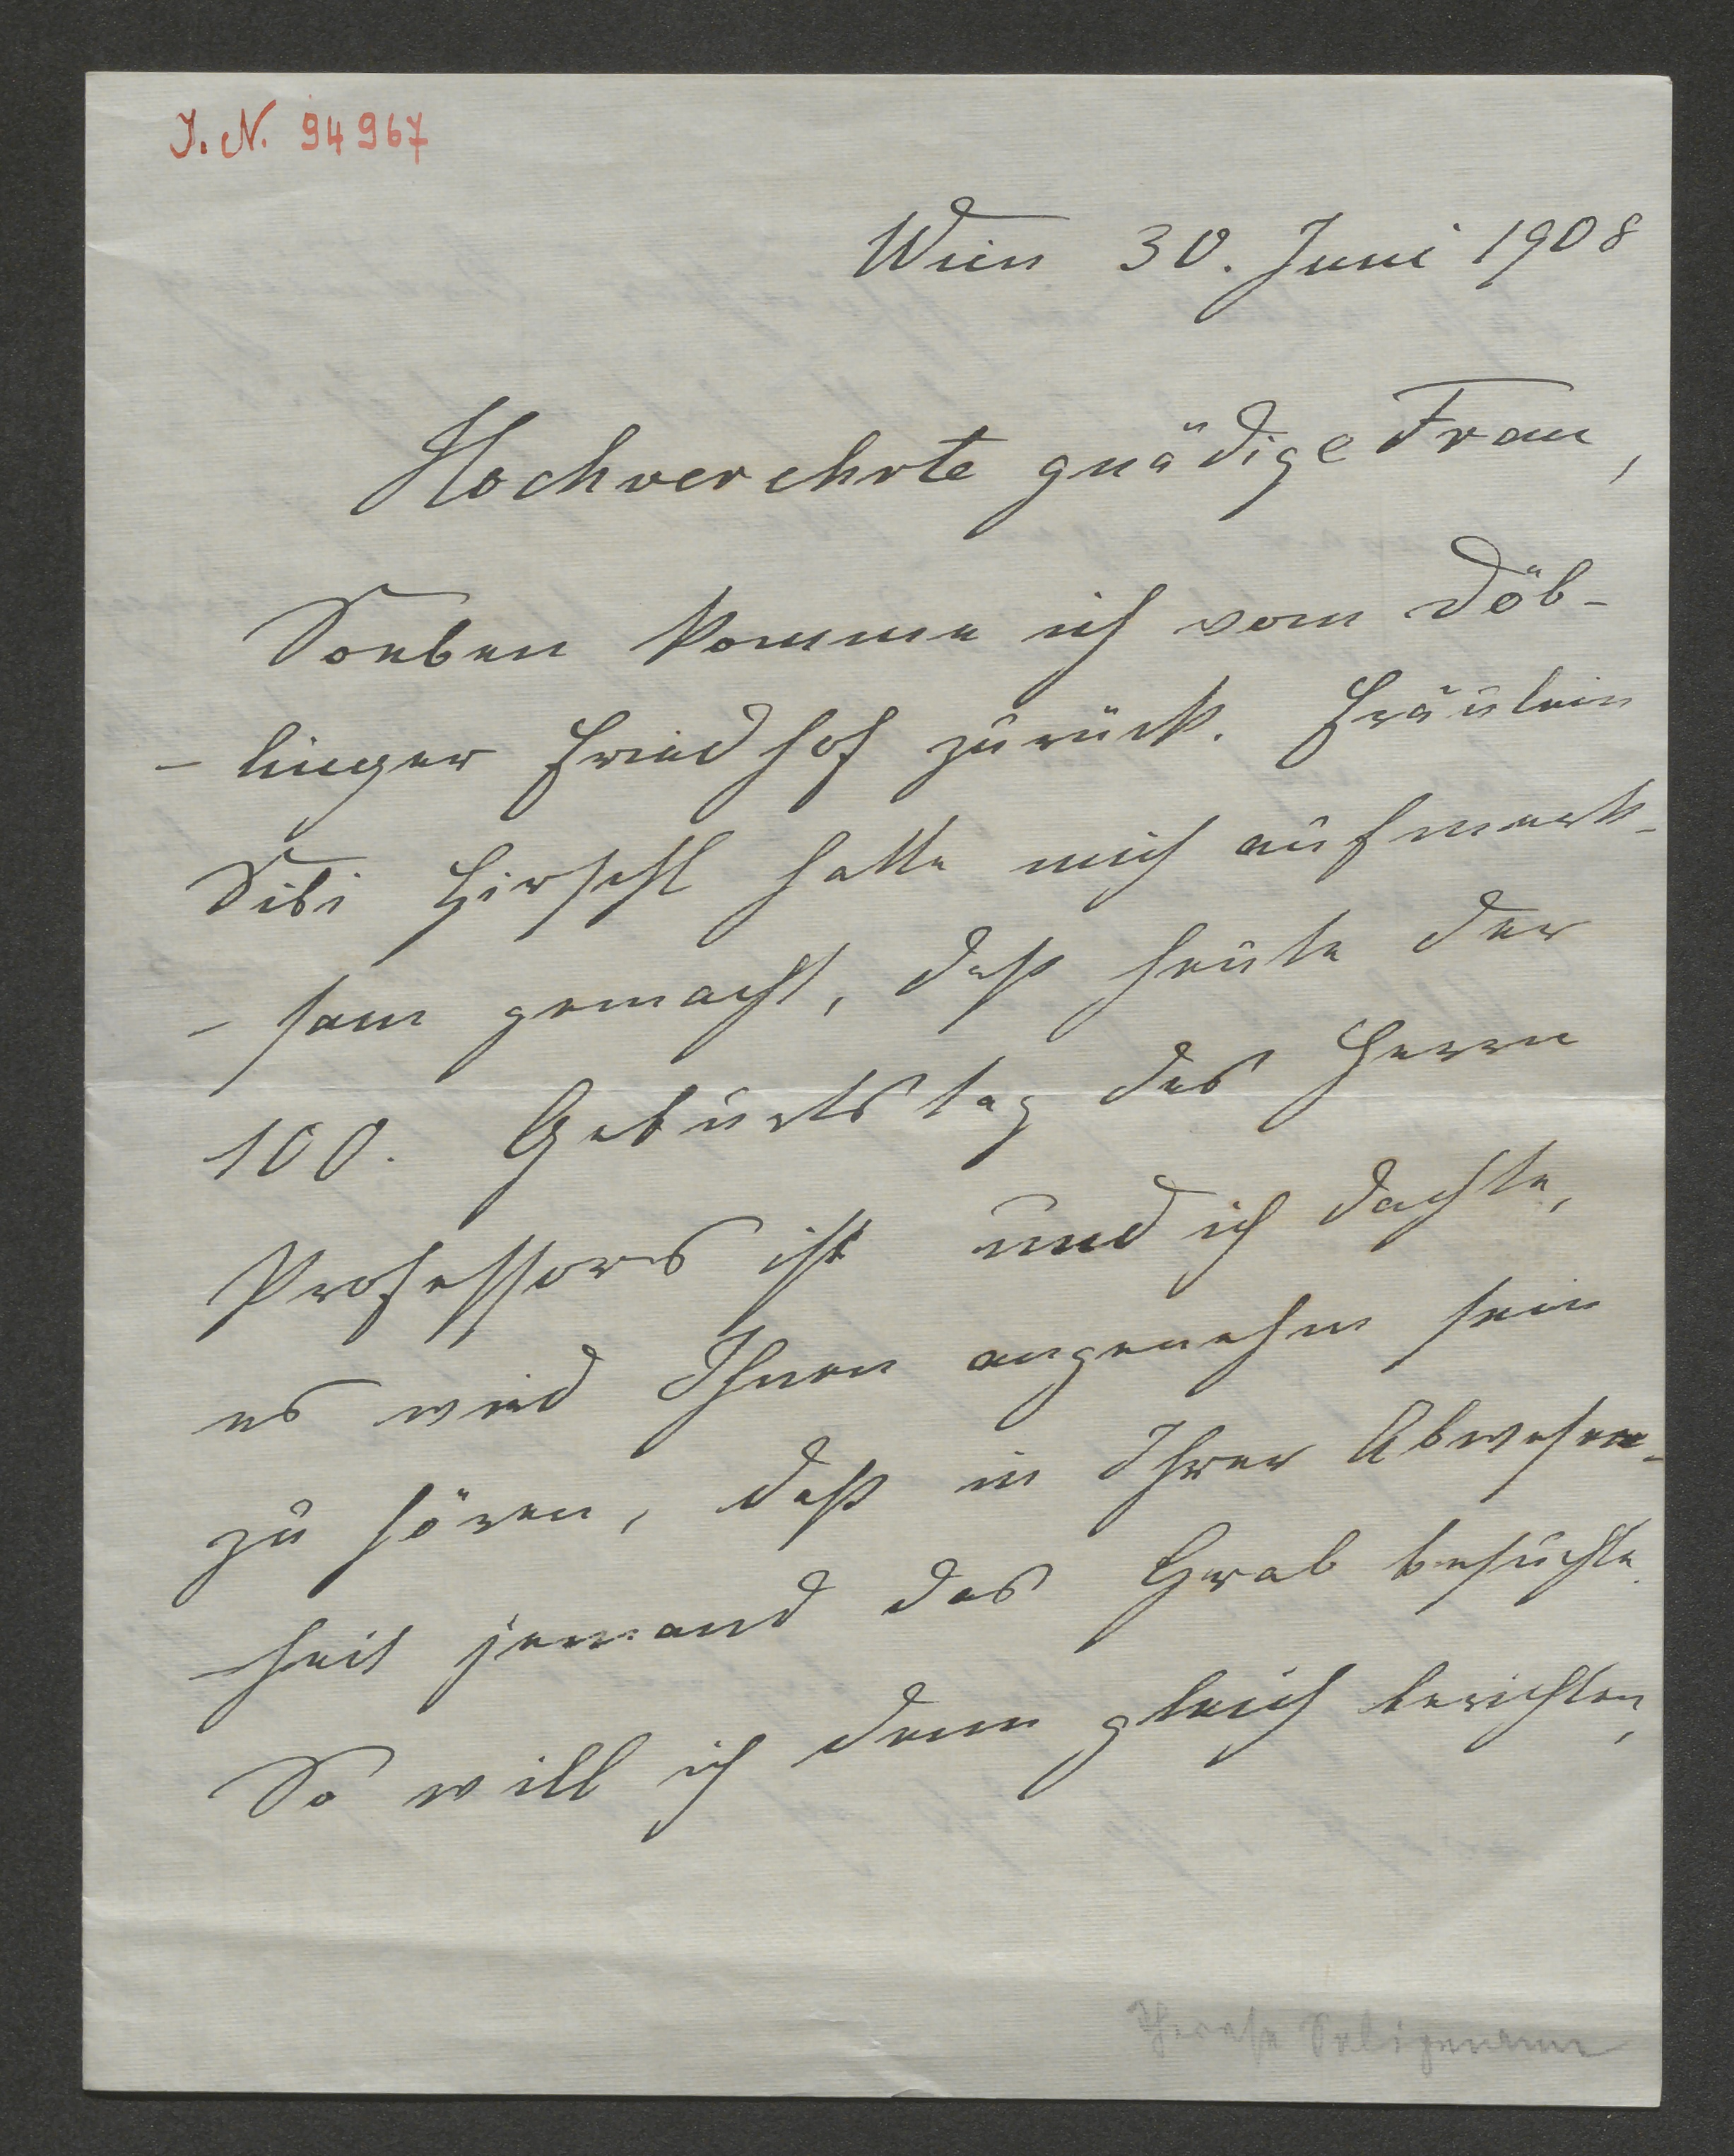 J. N. 94967
Wien 30. Juni 1908
Hochverehrte gnädige Frau,
Soeben komme ich vom Döb-
- linger Friedhof zurück. Fräulein
Sibi Hirschl hatte mich aufmerk-
- sam gemacht, daß heute der
100. Geburtstag des Herrn
Professors ist und ich dachte,
es wird Ihnen angenehm sein
zu hören, daß in Ihrer Abwesen-
-heit jemand das Grab besuchte.
So will ich denn gleich berichten,
Therese Seligmann